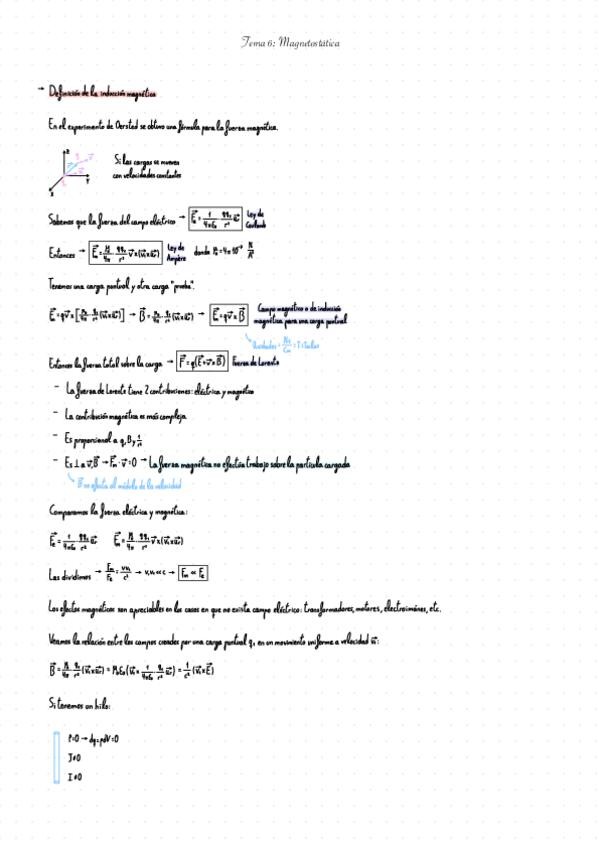 Tema 6: Magnetostática
→ Definición de la inducción magnética
En el experimento de Oersted se obtuvo una fórmula para la fuerza magnética.
Si las cargas se mueven
con velocidades constantes
Sabemos que la fuerza del campo eléctrico → F⃗e = 1/4πε₀ · qq₁/r² u⃗r Ley de Coulomb
Entonces → F⃗m = μ₀/4π · qq₁/r² v⃗×(v⃗₁×u⃗r) Ley de Ampère donde μ₀ = 4π·10⁻⁷ N/A²
Tenemos una carga puntual y otra carga "prueba".
F⃗m = qv⃗×[μ₀/4π · q₁/r² (v⃗₁×u⃗r)] → B⃗ = μ₀/4π · q₁/r² (v⃗₁×u⃗r) → F⃗m = qv⃗×B⃗ Campo magnético o de inducción
magnética para una carga puntual
Unidades = N·s/C·m = T = Teslas
Entonces la fuerza total sobre la carga → F⃗ = q(E⃗+v⃗×B⃗) Fuerza de Lorentz
- La fuerza de Lorentz tiene 2 contribuciones: eléctrica y magnética
- La contribución magnética es más compleja
- Es proporcional a q, B y 1/r²
- Es ⊥ a v⃗, B⃗ → F⃗m · v⃗ = 0 → La fuerza magnética no efectúa trabajo sobre la partícula cargada
B⃗ no afecta al módulo de la velocidad
Comparamos la fuerza eléctrica y magnética:
F⃗e = 1/4πε₀ · qq₁/r² u⃗r F⃗m = μ₀/4π · qq₁/r² v⃗×(v⃗₁×u⃗r)
Las dividimos → Fm/Fe = vv₁/c² → v,v₁ << c → Fm << Fe
Los efectos magnéticos son apreciables en los casos en que no exista campo eléctrico: transformadores, motores, electroimánes, etc.
Veamos la relación entre los campos creados por una carga puntual q₁ en un movimiento uniforme a velocidad v⃗₁:
B⃗ = μ₀/4π · q₁/r² (v⃗₁×u⃗r) = μ₀ε₀(v⃗₁ × 1/4πε₀ · q₁/r² u⃗r) = 1/c² (v⃗₁×E⃗)
Si tenemos un hilo:
ρ=0 → dq=ρdV=0
J≠0
I≠0